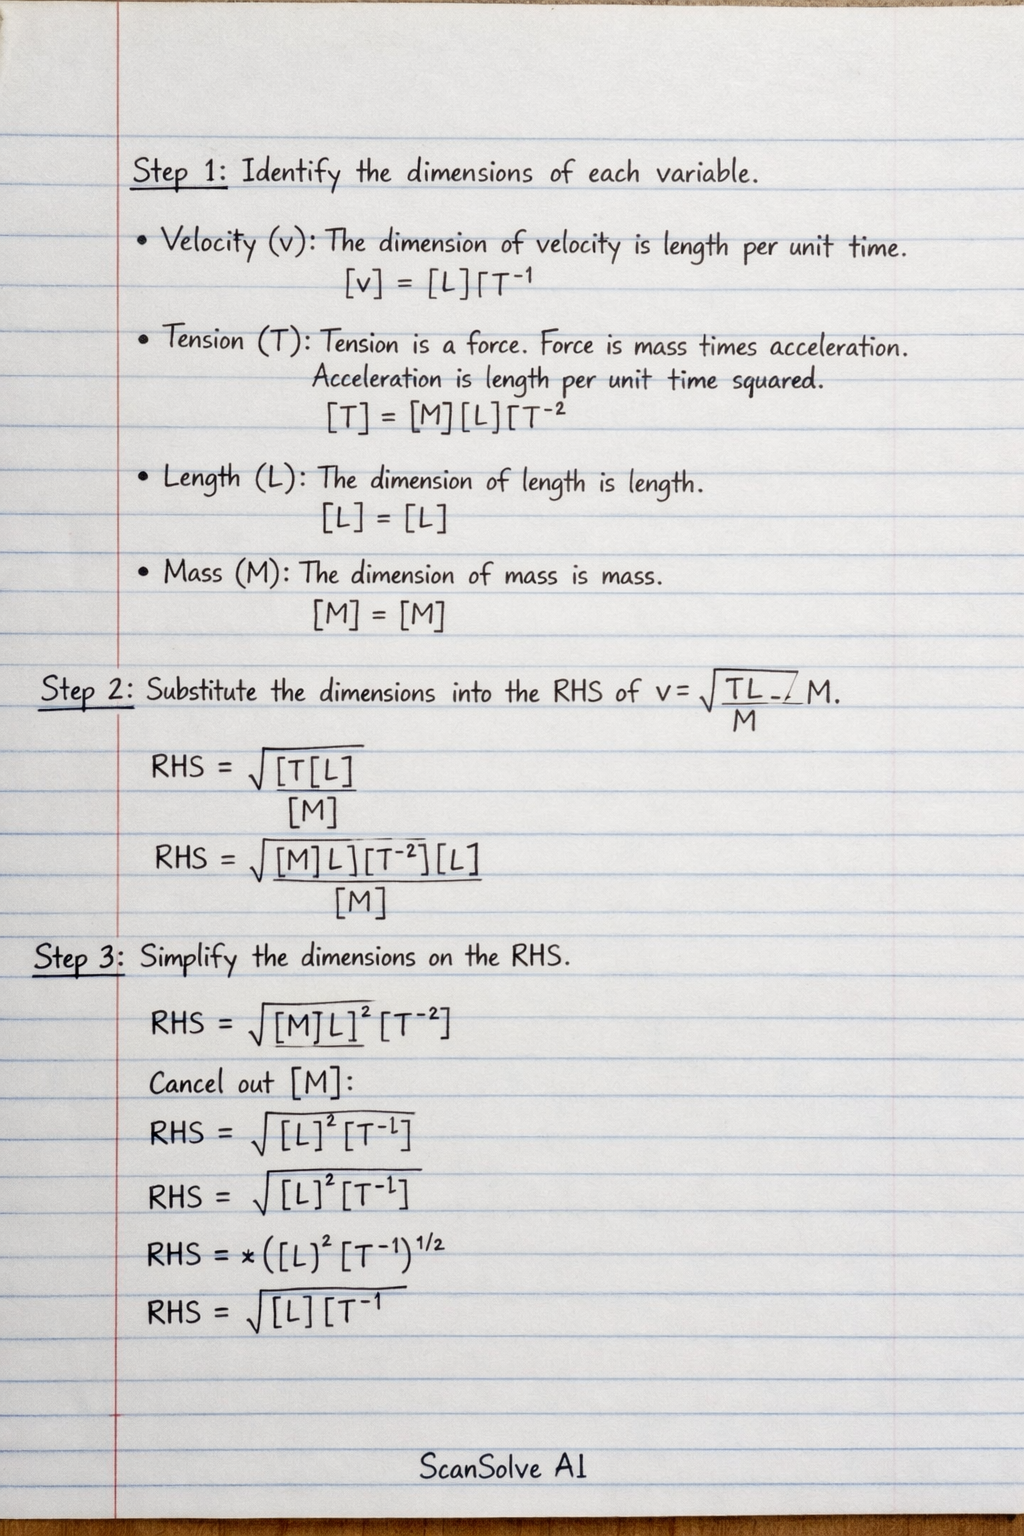 Step 1: Identify the dimensions of each variable.
• Velocity (v): The dimension of velocity is length per unit time.
[v] = [L][T⁻¹
• Tension (T): Tension is a force. Force is mass times acceleration.
Acceleration is length per unit time squared.
[T] = [M][L][T⁻²
• Length (L): The dimension of length is length.
[L] = [L]
• Mass (M): The dimension of mass is mass.
[M] = [M]
Step 2: Substitute the dimensions into the RHS of v = √TL M.
M
RHS = √[T[L]
[M]
RHS = √[M]L][T⁻²][L]
[M]
Step 3: Simplify the dimensions on the RHS.
RHS = √[M]L]² [T⁻²]
Cancel out [M]:
RHS = √[L]² [T⁻¹]
RHS = √[L]² [T⁻¹]
RHS = *([L)² [T⁻¹)¹/²
RHS = √[L] [T⁻¹
ScanSolve AI